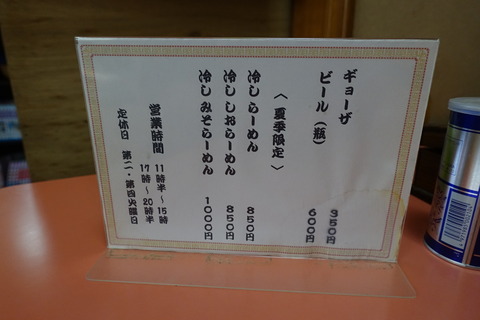 ギョーザ 350円
ビール(瓶) 600円
〈夏季限定〉
冷しらーめん 850円
冷ししおらーめん 850円
冷しみそらーめん 1000円
営業時間 11時半〜15時
17時〜20時半
定休日 第二・第四火曜日